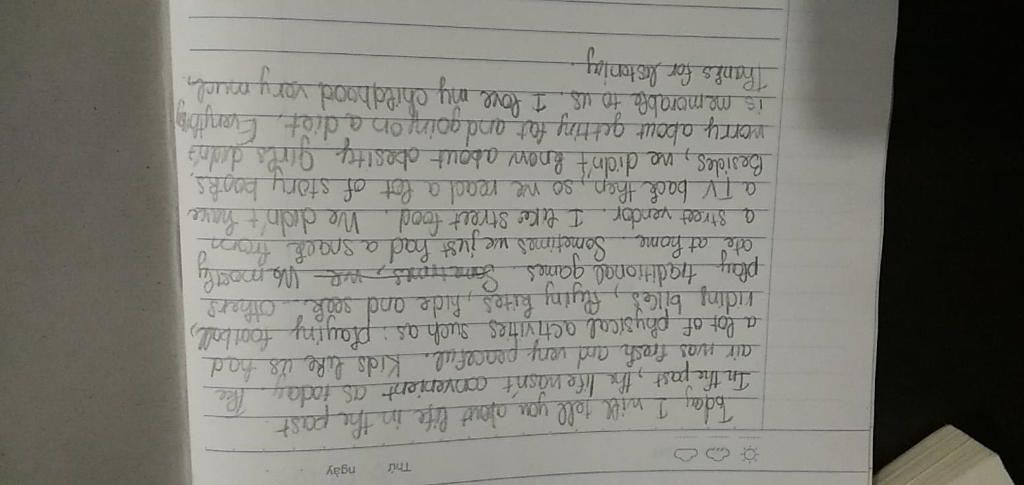 Thứ ngày
Today I will tell you about life in the past.
In the past, the life wasn't convenient as today. The
air was fresh and very peaceful. Kids like us had
a lot of physical activities such as: playing football,
riding bikes, flying kites, hide and seek. Others
play traditional games. Sometimes, we We mostly
ate at home. Sometimes we just had a snack from
a street vendor. I like street food. We didn't have
a TV back then, so we read a lot of story books.
Besides, we didn't know about obesity. Girls didn't
worry about getting fat and going on a diet. Everything
is memorable to us. I love my childhood very much.
Thanks for listening.